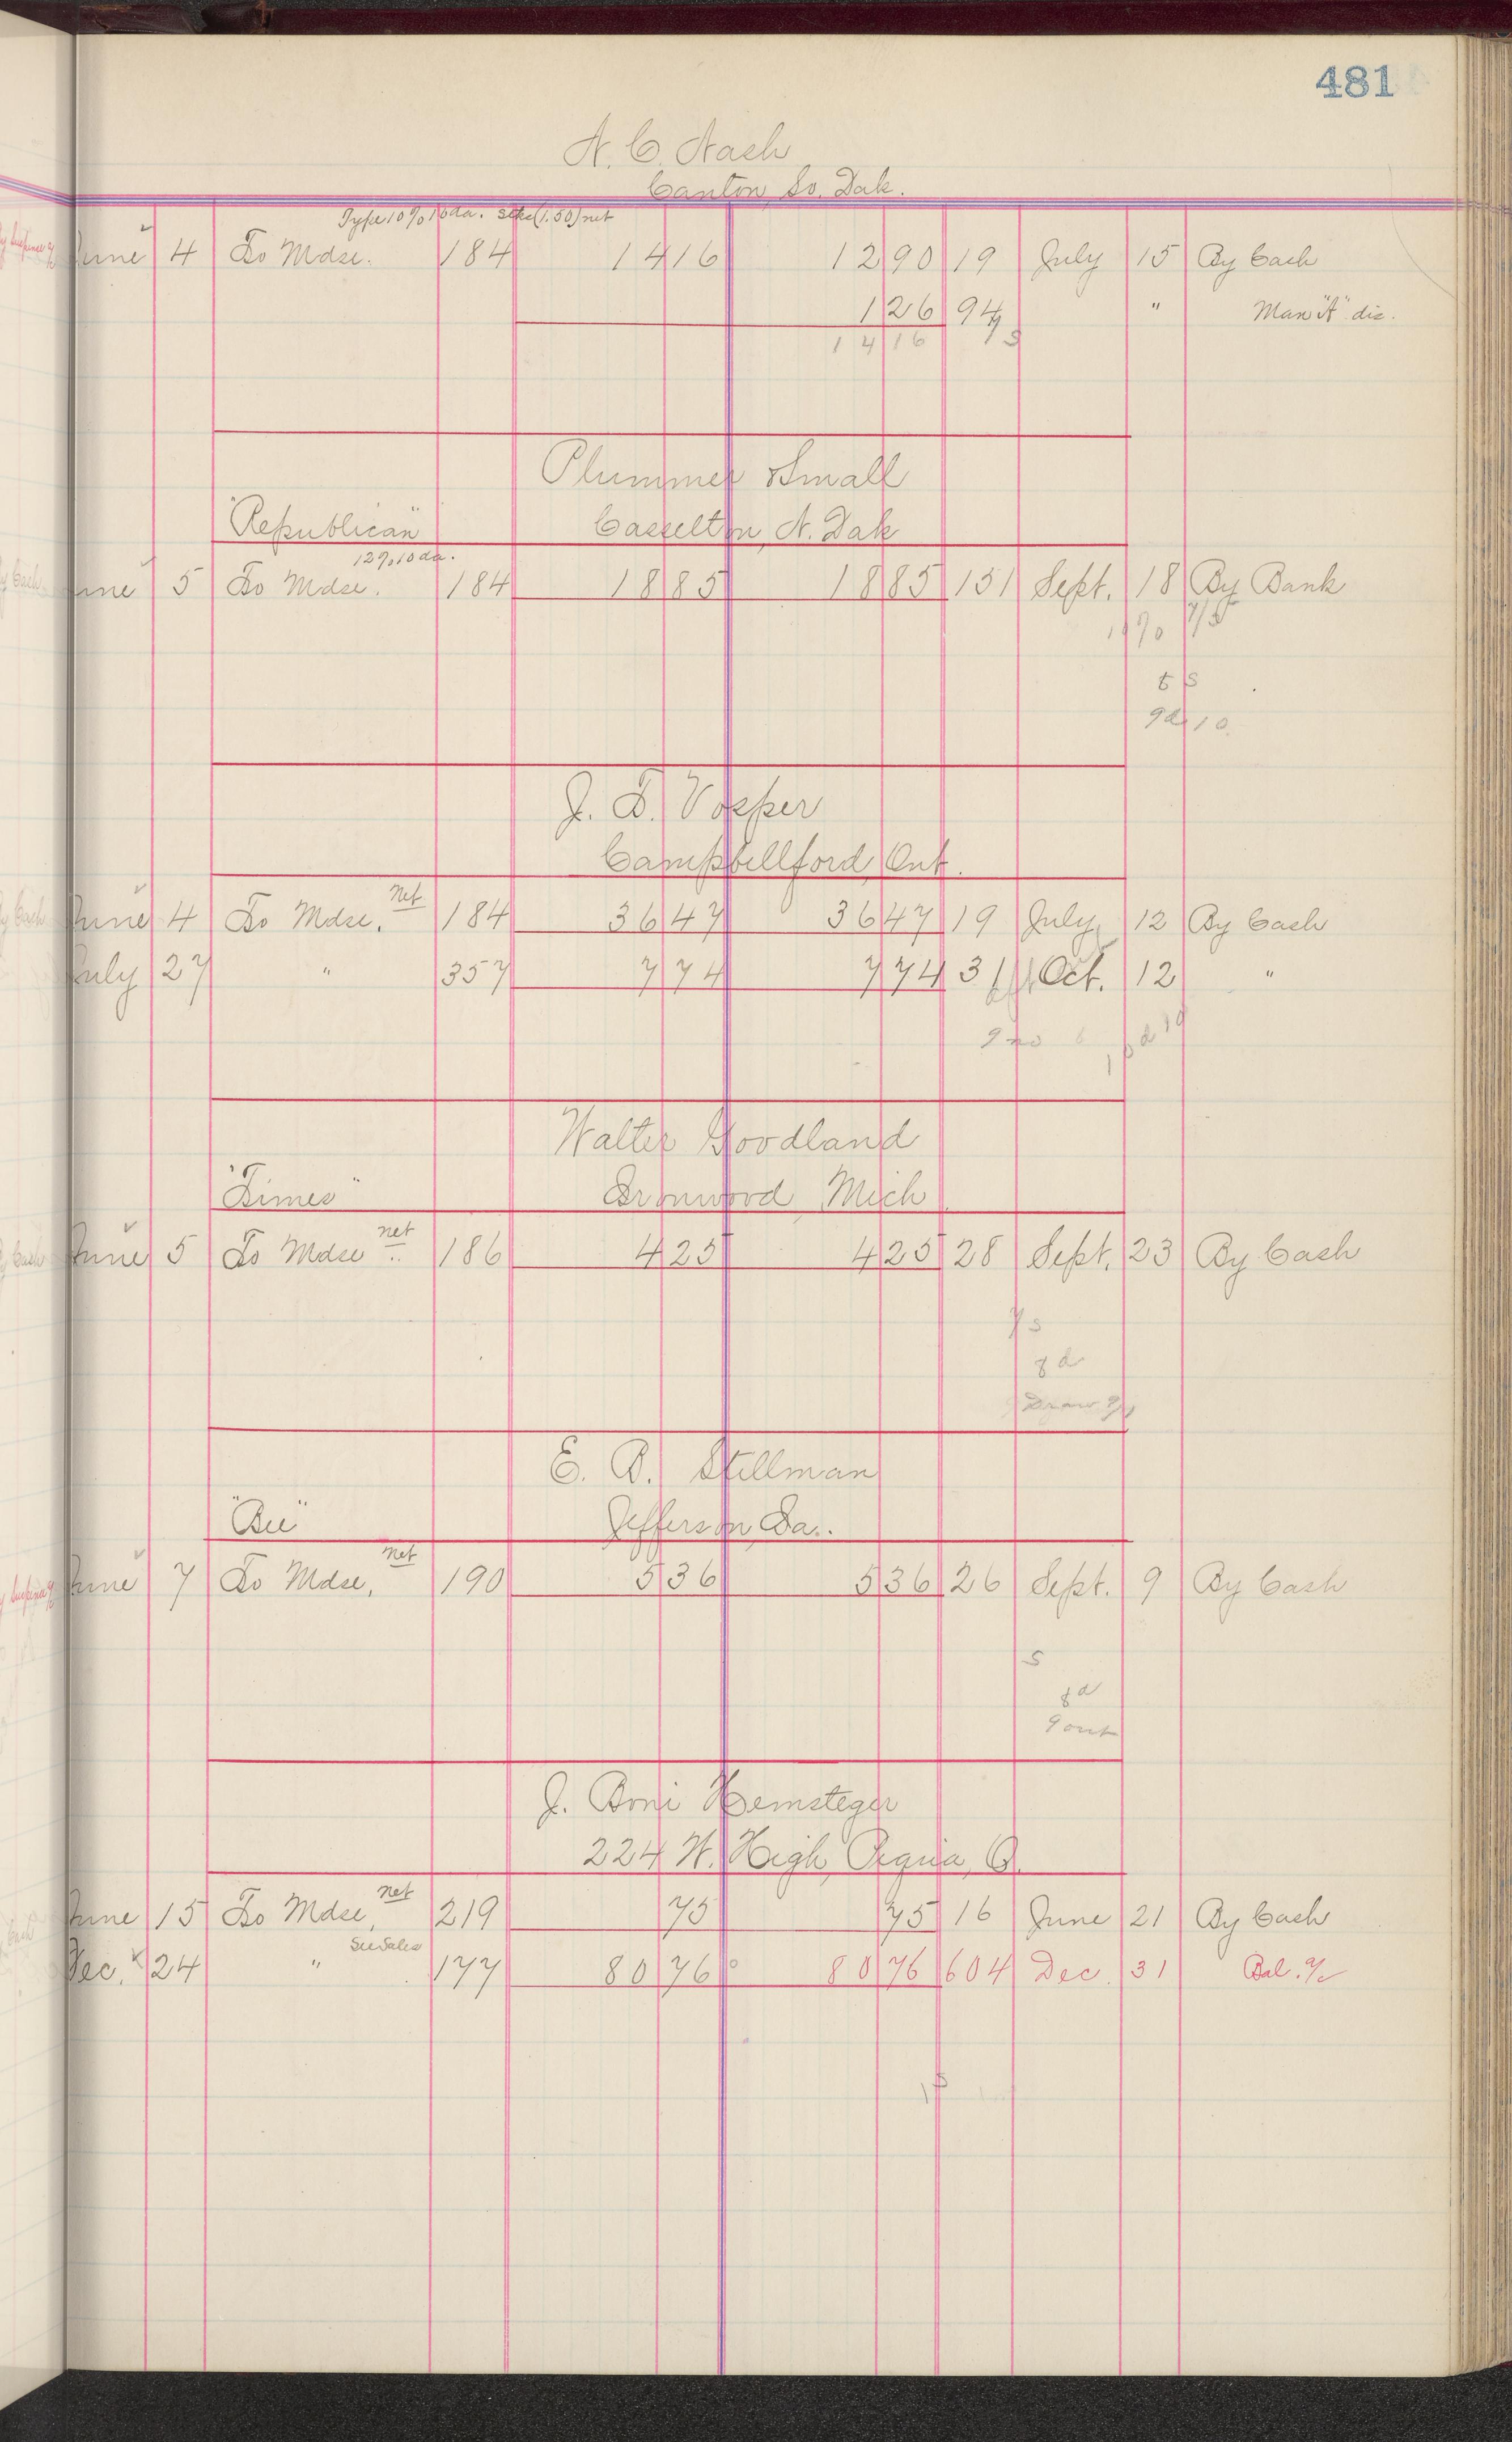 481
N. C. Nash
Canton, So. Dak.
Type 10% 10 da. net
June 4 To Mdse. 184 14 16 12 90 19 July 15 By Cash
1 26 94 " Man "A" dis.
14 16
Plummer Small
"Republican" Casselton, N. Dak
12% 10 da.
June 5 To Mdse. 184 18 85 18 85 151 Sept. 18 By Bank
8 s
9d 10
J. T. Vosper
Campbellford, Ont.
net
June 4 To Mdse. 184 36 47 36 47 19 July 12 By Cash
July 27 " 357 7 74 7 74 31 Oct. 12 "
Walter Goodland
"Times" Ironwood Mich
net
June 5 To Mdse. 186 4 25 4 25 28 Sept. 23 By Cash
7 s
8 d
Draw
E. B. Stillman
"Bee" Jefferson, Ia.
net
June 7 To Mdse. 190 5 36 5 36 26 Sept. 9 By Cash
s
8 d
9 out
J. Boni Hemsteger
224 W. High, Piqua, O.
net
June 15 To Mdse, 219 75 75 16 June 21 By Cash
See Sales
Dec. 24 " 177 80 76 80 76 604 Dec. 31 Bal. a/c